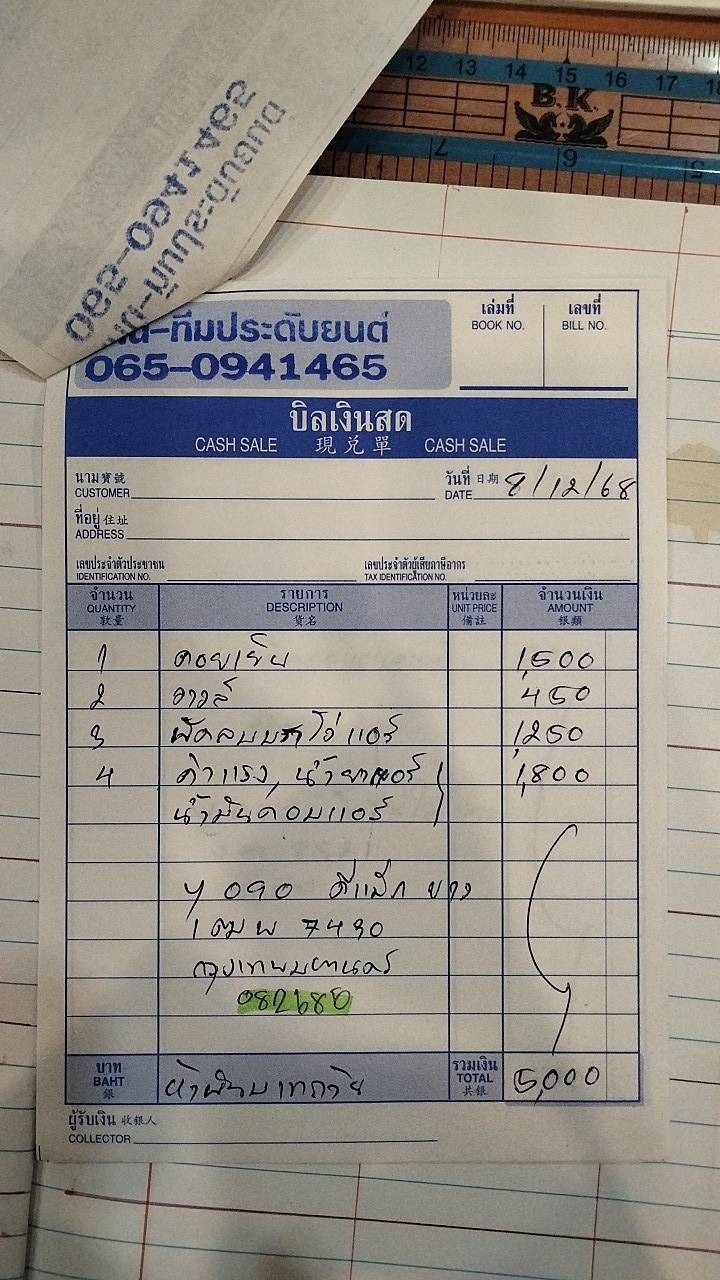 12 13 14 15 16 17
B.K.
7 6 5
065-0941465
-ทีมประดับยนต์
065-0941465
เล่มที่ เลขที่
BOOK NO. BILL NO.
บิลเงินสด
CASH SALE 現兌單 CASH SALE
นาม 寶號
CUSTOMER
วันที่ 日期
DATE 8/12/68
ที่อยู่ 住址
ADDRESS
เลขประจำตัวประชาชน เลขประจำตัวผู้เสียภาษีอากร
IDENTIFICATION NO. TAX IDENTIFICATION NO.
จำนวน รายการ หน่วยละ จำนวนเงิน
QUANTITY DESCRIPTION UNIT PRICE AMOUNT
數量 貨名 備註 銀額
1 คอยเย็น 1,500
2 วาวล์ 450
3 พัดลมบราโว่ แอร์ 1,250
4 ค่าแรง, น้ำยาแอร์ 1,800
น้ำมันคอมแอร์
090 ดีแม็ก ขาว
1 ฒพ 7430
กรุงเทพมหานคร
082680
บาท รวมเงิน
BAHT ห้าพันบาทถ้วน TOTAL 5,000
銀 共銀
ผู้รับเงิน 收銀人
COLLECTOR